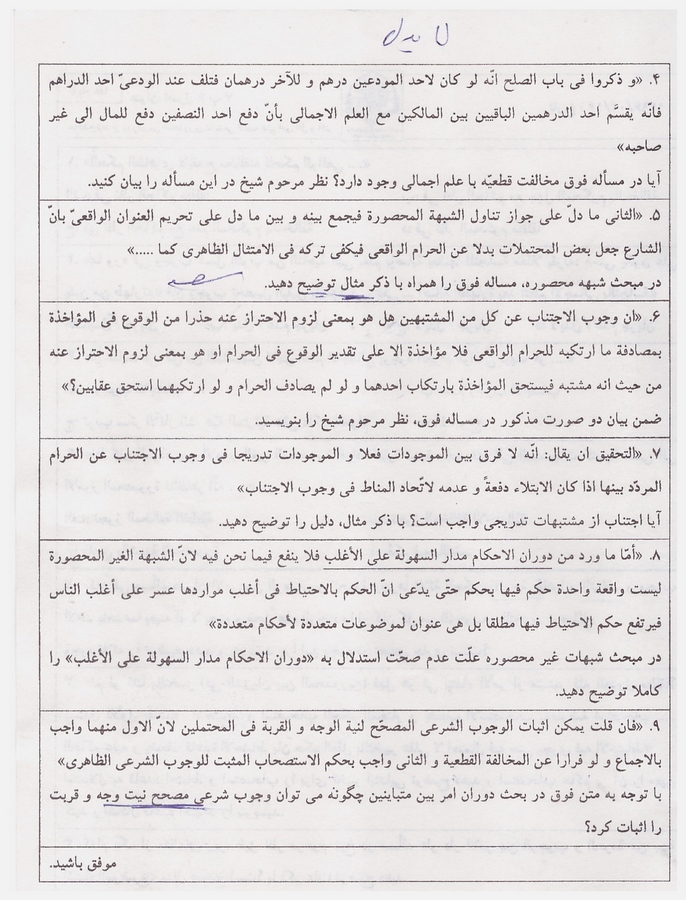 ۴. «و ذکروا فی باب الصلح انّه لو کان لاحد المودعین درهم و للآخر درهمان فتلف عند الودعیّ احد الدراهم
فانّه یقسَّم احد الدرهمین الباقیین بین المالکین مع العلم الاجمالی بأنّ دفع احد النصفین دفع للمال الی غیر
صاحبه»
آیا در مسأله فوق مخالفت قطعیّه با علم اجمالی وجود دارد؟ نظر مرحوم شیخ در این مسأله را بیان کنید.
۵. «الثانی ما دلّ علی جواز تناول الشبهة المحصورة فیجمع بینه و بین ما دل علی تحریم العنوان الواقعیّ بانّ
الشارع جعل بعض المحتملات بدلا عن الحرام الواقعی فیکفی ترکه فی الامتثال الظاهری کما .....»
در مبحث شبهه محصوره، مساله فوق را همراه با ذکر مثال توضیح دهید.
۶. «ان وجوب الاجتناب عن کل من المشتبهین هل هو بمعنی لزوم الاحتراز عنه حذرا من الوقوع فی المؤاخذة
بمصادفة ما ارتکبه للحرام الواقعی فلا مؤاخذة الا علی تقدیر الوقوع فی الحرام او هو بمعنی لزوم الاحتراز عنه
من حیث انه مشتبه فیستحق المؤاخذة بارتکاب احدهما و لو لم یصادف الحرام و لو ارتکبهما استحق عقابین؟»
ضمن بیان دو صورت مذکور در مساله فوق، نظر مرحوم شیخ را بنویسید.
۷. «التحقیق ان یقال: انّه لا فرق بین الموجودات فعلا و الموجودات تدریجا فی وجوب الاجتناب عن الحرام
المردّد بینها اذا کان الابتلاء دفعةً و عدمه لاتّحاد المناط فی وجوب الاجتناب»
آیا اجتناب از مشتبهات تدریجی واجب است؟ با ذکر مثال، دلیل را توضیح دهید.
۸. «أمّا ما ورد من دوران الاحکام مدار السهولة علی الأغلب فلا ینفع فیما نحن فیه لانّ الشبهة الغیر المحصورة
لیست واقعة واحدة حکم فیها بحکم حتّی یدّعی انّ الحکم بالاحتیاط فی أغلب مواردها عسر علی أغلب الناس
فیرتفع حکم الاحتیاط فیها مطلقا بل هی عنوان لموضوعات متعددة لأحکام متعددة»
در مبحث شبهات غیر محصوره علّت عدم صحّت استدلال به «دوران الاحکام مدار السهولة علی الأغلب» را
کاملا توضیح دهید.
۹. «فان قلت یمکن اثبات الوجوب الشرعی المصحّح لنیة الوجه و القربة فی المحتملین لانّ الاول منهما واجب
بالاجماع و لو فرارا عن المخالفة القطعیة و الثانی واجب بحکم الاستصحاب المثبت للوجوب الشرعی الظاهری»
با توجه به متن فوق در بحث دوران امر بین متباینین چگونه می توان وجوب شرعی مصحح نیت وجه و قربت
را اثبات کرد؟
موفق باشید.